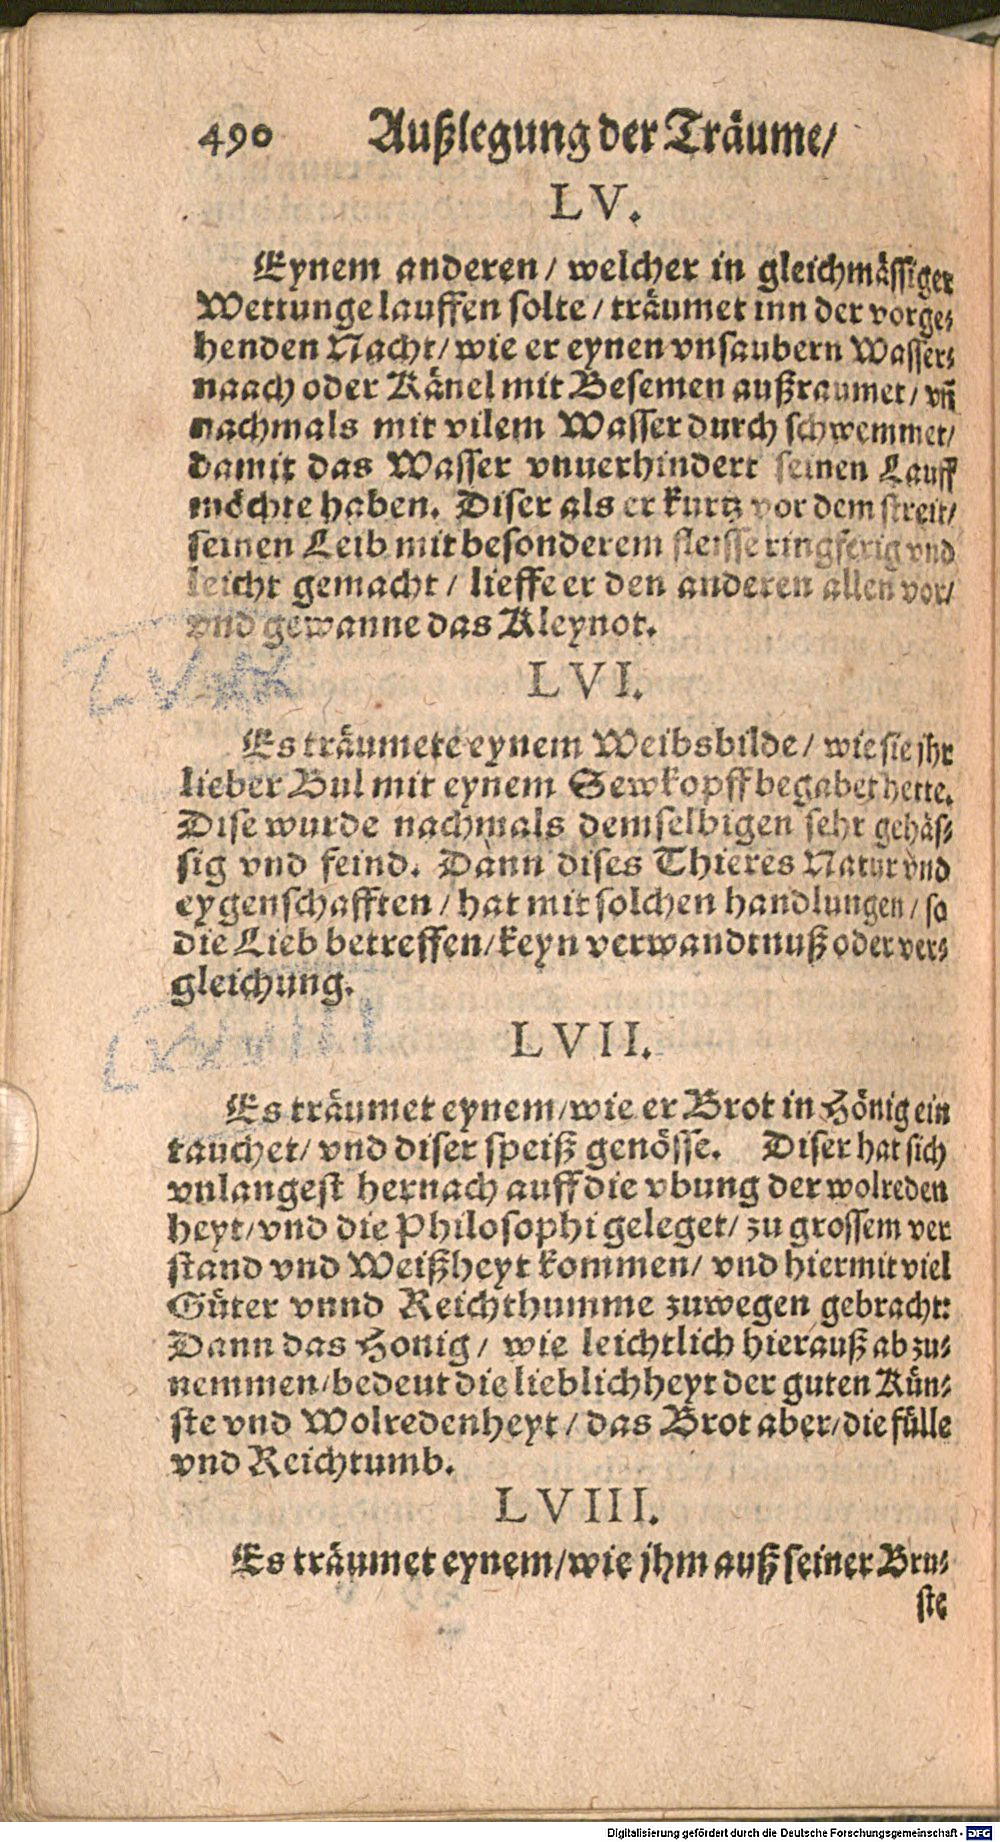 490 Außlegung der Träume/
LV.
Eynem anderen / welcher in gleichmässiger
Wettunge lauffen solte / träumet inn der vorge-
henden Nacht/ wie er eynen vnsaubern Wasser-
naach oder Känel mit Besemen außraumet / vñ
nachmals mit vilem Wasser durch schwemmet/
damit das Wasser vnuerhindert seinen Lauff
möchte haben. Diser als er kurtz vor dem streit/
seinen Leib mit besonderem fleisse ringferig vnd
leicht gemacht / lieffe er den anderen allen vor/
vnd gewanne das Kleynot.
LVI.
Es träumete eynem Weibsbilde / wie sie jhr
lieber Bul mit eynem Sewkopff begabet hette.
Dise wurde nachmals demselbigen sehr gehäs-
sig vnd feind. Dann dises Thieres Natur vnd
eygenschafften / hat mit solchen handlungen / so
die Lieb betreffen/ keyn verwandtnuß oder ver-
gleichung.
LVII.
Es träumet eynem/wie er Brot in Hönig ein
tauchet/ vnd diser speiß genösse. Diser hat sich
vnlangest hernach auff die vbung der wolreden
heyt/vnd die Philosophi geleget/ zu grossem ver
stand vnd Weißheyt kommen/ vnd hiermit viel
Güter vnnd Reichthumme zuwegen gebracht:
Dann das Honig / wie leichtlich hierauß ab zu-
nemmen/bedeut die lieblichheyt der guten Kün-
ste vnd Wolredenheyt / das Brot aber/die fülle
vnd Reichtumb.
LVIII.
Es träumet eynem/wie jhm auß seiner Bru-
ste
Digitalisierung gefördert durch die Deutsche Forschungsgemeinschaft - DFG